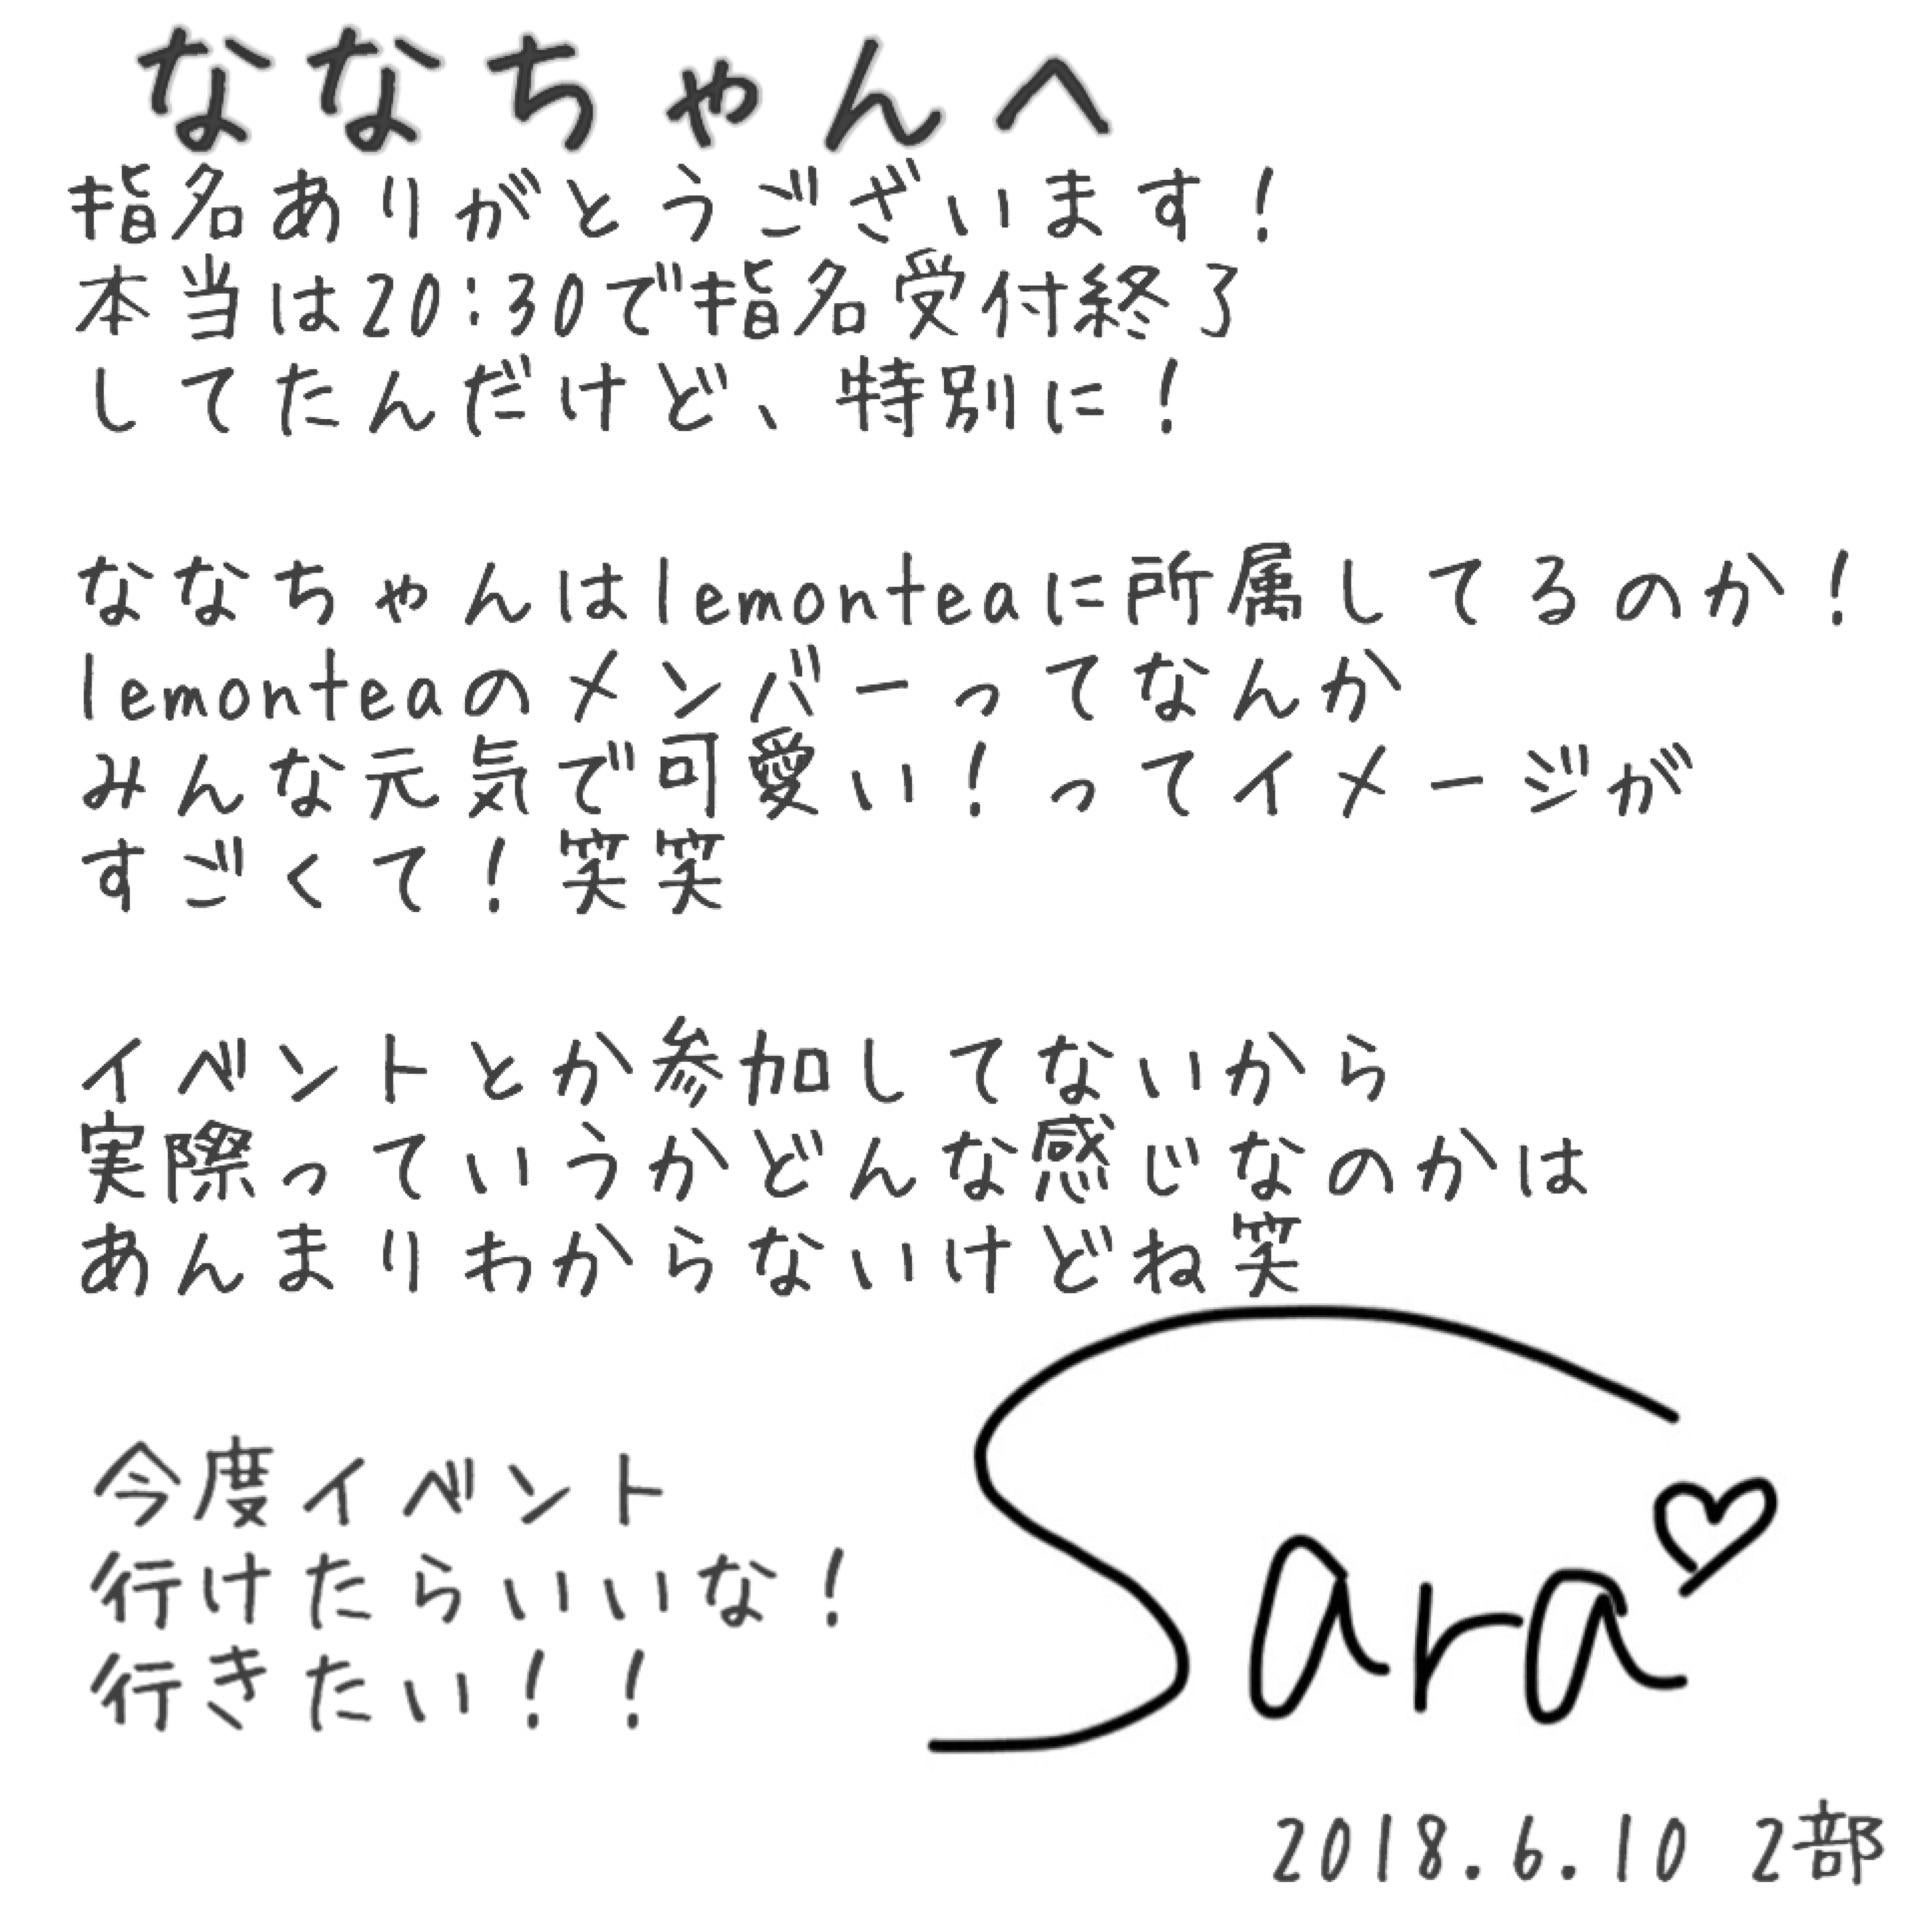 ななちゃんへ
指名ありがとうございます!
本当は20:30で指名受付終了
してたんだけど、特別に!
ななちゃんはlemonteaに所属してるのか!
lemonteaのメンバーってなんか
みんな元気で可愛い!ってイメージが
すごくて!笑笑
イベントとか参加してないから
実際っていうかどんな感じなのかは
あんまりわからないけどね笑
今度イベント
行けたらいいな!
行きたい!!
Sara♡
2018.6.10 2部